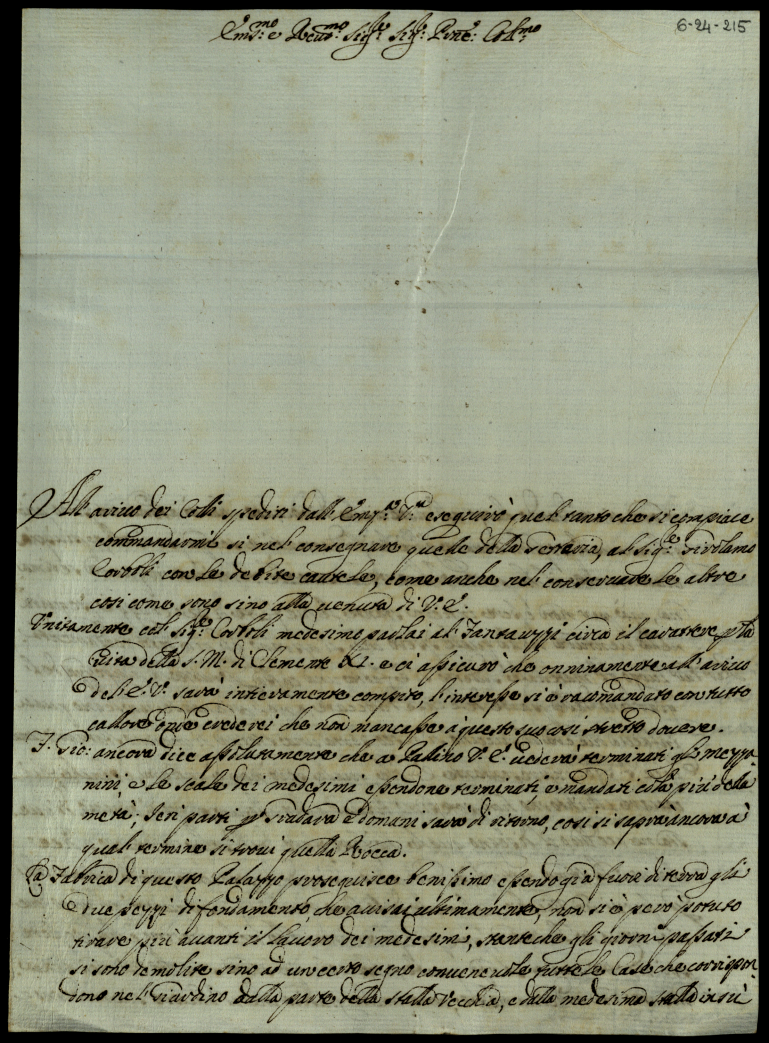 6-24-215
Em.mo e Rev.mo Sig.re Sig.re P.rone Col.mo
All'arivo dei Colli spediti dall'Em.za V.ra eseguirò quel tanto che si compiace
commandarmi si nel consegnare quelle della al Sig.re Girolamo
Corboli con le debite cautele, come anche nel conservare le altre
cosi come sono sino alla venuta di V.E.
Unitamente col Sig.re Corboli medesimo parlai al Fantauzzi circa il carattere p la
Vita della S.M. di Clemente XI. e ci assicurò che onninamente all'arivo
dell'E.V. sarà intieramente compito, l'interesse si è racomandato con tutto
callore onde crederei che non mancasse a questo suo così stretto dovere.
F. Gio: ancora dice assolutamente che a Paliano V.E. vederà terminati gli mezza-
nini, e le scale dei medesimi essendone terminati, e mandati colà più della
metà; Ieri partì p Soriano e domani sarà di ritorno, così si saprà ancora a
qual termine si trovi quella Rocca.
La Fabrica di questo Palazzo proseguisce benissimo essendo già fuori di terra gli
due pezzi di fondamento che avisai ultimamente, non si è però potuto
tirare più avanti il lavoro dei medesimi, stante che gli giorni passati
si sono demolite sino ad un certo segno convenevole tutte le Case che corrispon-
dono nel Giardino dalla parte della stalla vecchia, e dalla medesima stalla in sù